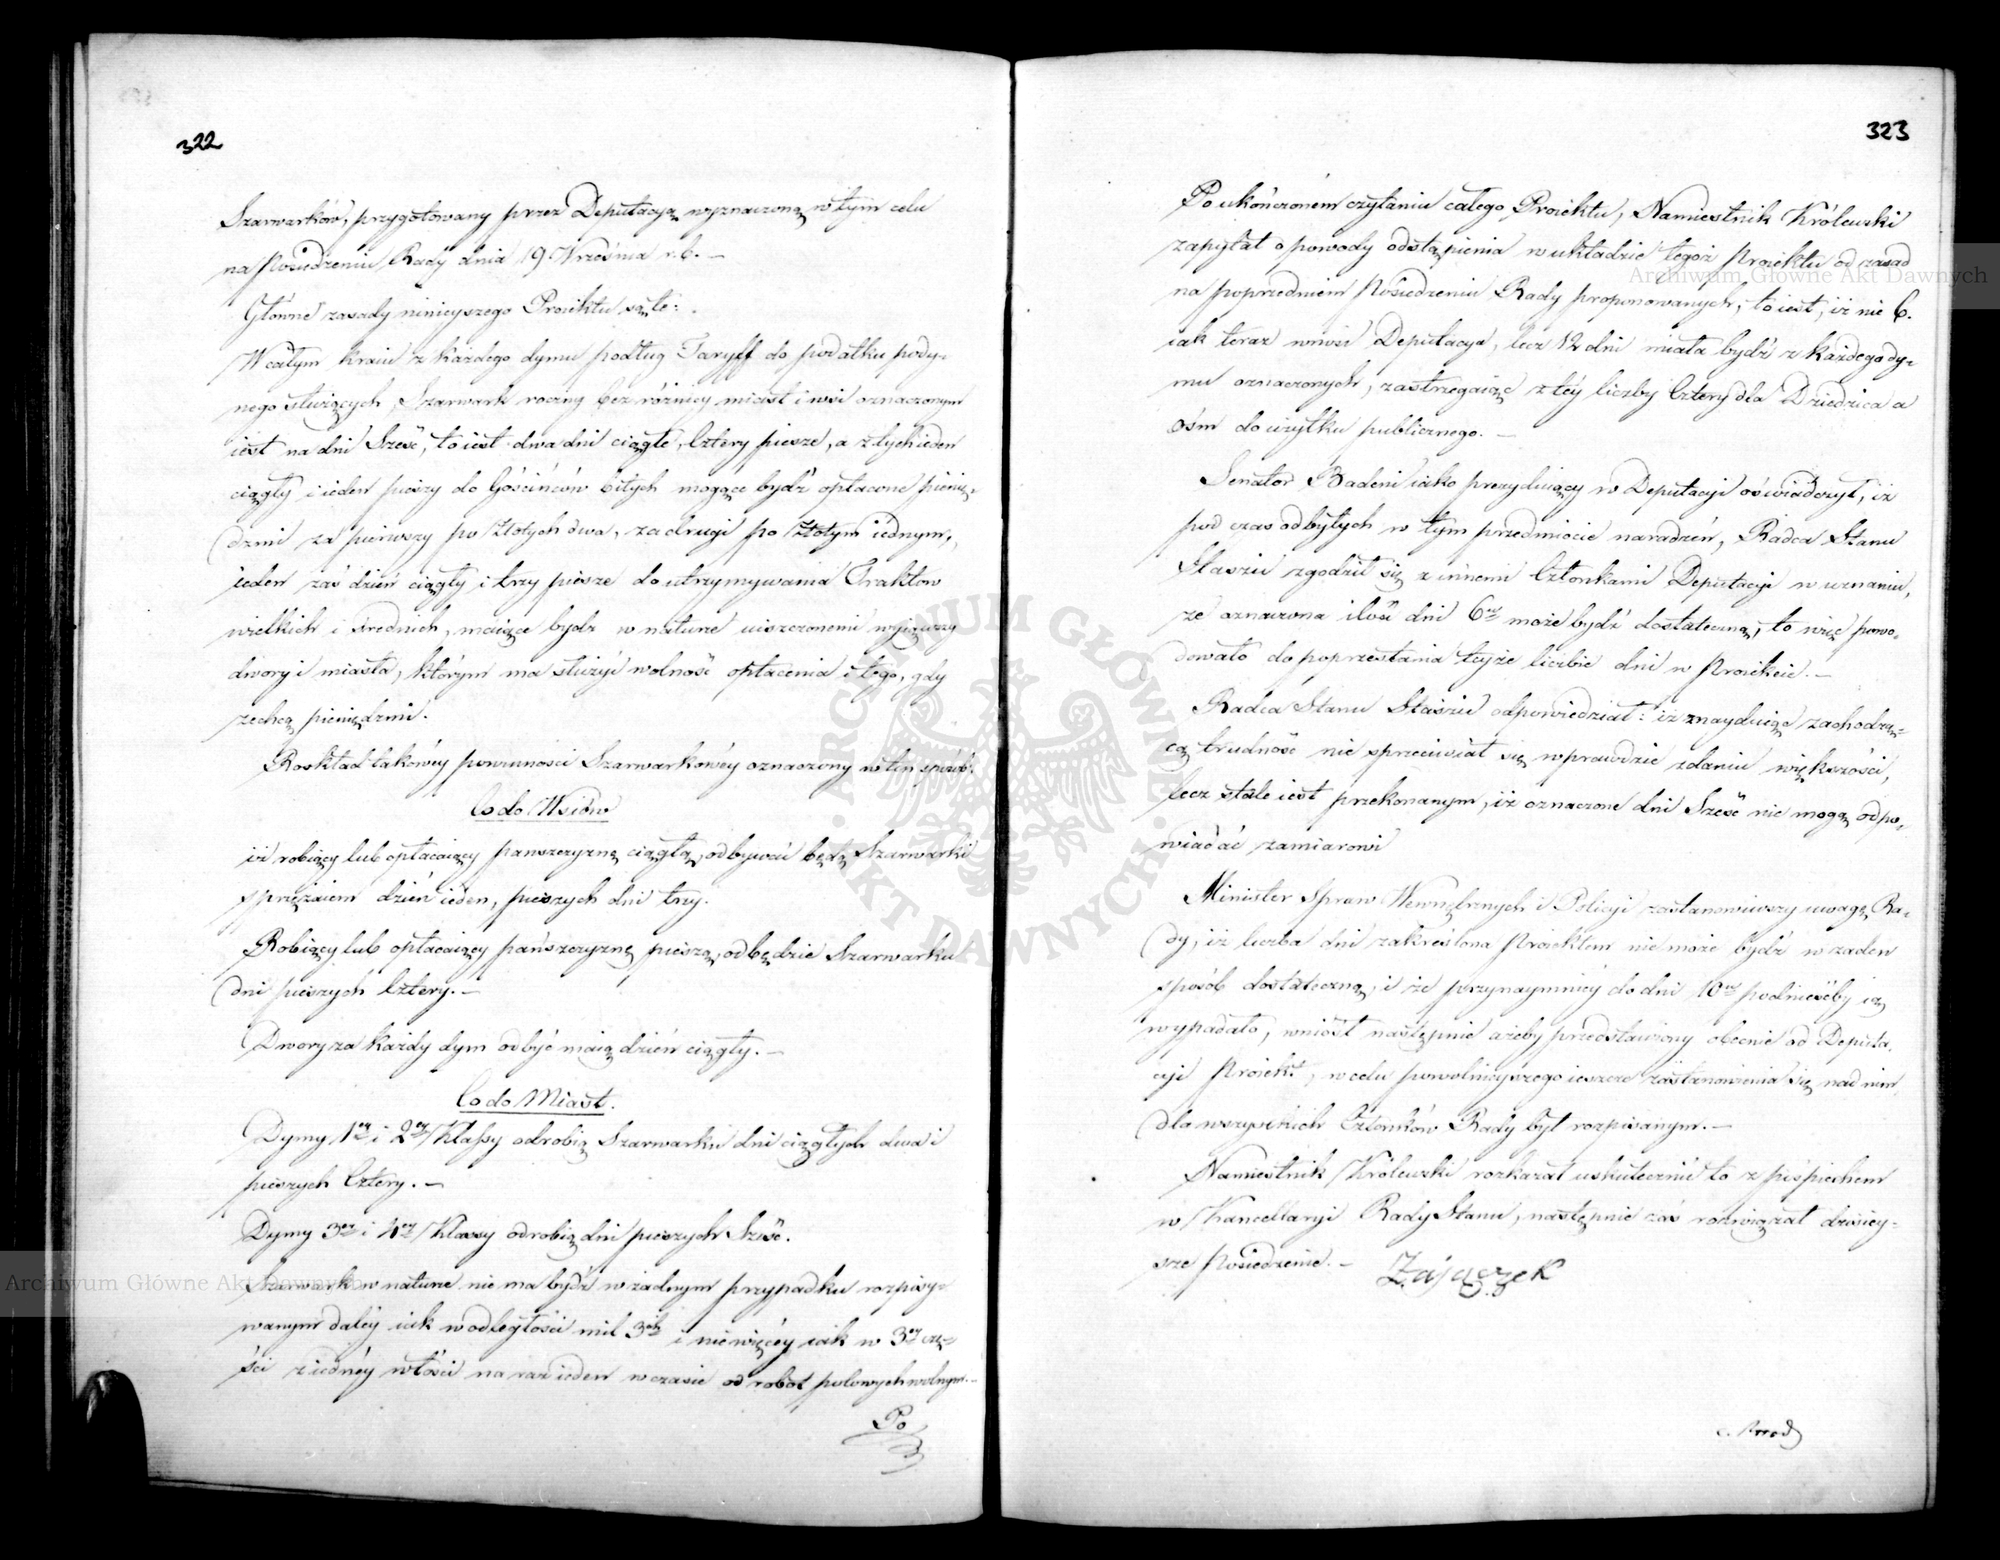 322
Szarwarków, przygotowany przez Deputacyą wyznaczoną w tym celu
na Posiedzeniu Rady dnia 19 Września r. b. —
Główne zasady ninieyszego Proiektu są te:
W całym kraiu z każdego dymu podług Taryff do podatku pody-
mnego służących, Szarwark roczny bez różnicy miast i wsi oznaczonym
iest na dni Sześć, to iest dwa dni ciągłe, Cztery piesze, a z tych ieden
ciągły i ieden pieszy do Gościńców bitych mogące bydź opłacone pienię-
dzmi za pierwszy po Złotych dwa, za drugi po Złotym iednym,
ieden zaś dzień ciągły i trzy piesze do utrzymywania Traktów
wielkich i średnich, maiące bydź w naturze uiszczonemi wyiąwszy
dwory i miasta, którym ma służyć wolność opłacenia i tego, gdy
zechcą pieniędzmi.
Roskład takowéy powinności Szarwarkowéy oznaczony w ten sposób:
Co do Wsiów
iż robiący lub opłacaiący pańszczyznę ciągłą, odbywać będą Szarwarki
sprzężaiem dzień ieden, pieszych dni trzy.
Robiący lub opłacaiący pańszczyznę pieszą, odbędzie Szarwarku
dni pieszych Cztery. —
Dwory za każdy dym odbyć maią dzień ciągły. —
Co do Miast.
Dymy 1ey i 2ey Klassy odrobią Szarwarku dni ciągłych dwa i
pieszych Cztery. —
Dymy 3ey i 4ey Klassy odrobią dni pieszych Sześć.
Szarwark w naturze nie ma bydź w żadnym przypadku rozpisy-
wanym daléy iak w odległości mil 3ch i niewięcéy iak w 3ey czę-
ści z iednéy włości na raz ieden w czasie od robót polowych wolnym. —
Po
323
Po ukończoném czytaniu całego Proiektu, Namiestnik Królewski
zapytał o powody odstąpienia w układzie tegoż Proiektu od zasad
na poprzedniem Posiedzeniu Rady proponowanych, to iest, iż nie 6.
iak teraz wnosi Deputacya, lecz 12 dni miało bydź z każdego dy-
mu oznaczonych, zastrzegaiąc z téy liczby Cztery dla Dziedzica a
ośm do użytku publicznego. —
Senator Badeni iako prezyduiący w Deputacyi oświadczył, iż
pod czas odbytych w tym przedmiocie naradzeń, Radca Stanu
Staszic zgodził się z innemi Członkami Deputacyi w uznaniu,
że oznaczona ilość dni 6ciu może bydź dostateczną, to więc powo-
dowało do poprzestania na téyże liczbie dni w Proiekcie. —
Radca Stanu Staszic odpowiedział: iż znayduiąc zachodzą-
cą trudność nie sprzeciwiał się wprawdzie zdaniu większości,
lecz stale iest przekonanym, iż oznaczone dni Sześć nie mogą odpo-
wiadać zamiarowi
Minister Spraw Wewnętrznych i Policyi zastanowiwszy uwagę Ra-
dy, iż liczba dni zakreślona Proiektem nie może bydź w żaden
sposób dostateczną, i że przynaymniéy do dni 10ciu podnieśćby ią
wypadało, wniósł następnie ażeby przedstawiony obecnie od Deputa-
cyi Proiekt, w celu powolnieyszego ieszcze zastanowienia się nad nim
dla wszystkich Członków Rady był rozpisanym. —
Namiestnik Królewski rozkazał uskutecznić to z pośpiechem
w Kancellaryi Rady Stanu, następnie zaś rozwiązał dzisiey-
sze Posiedzenie. — Zajączek
Archiwum Główne Akt Dawnych
Archiwum Główne Akt Dawnych
ARCHIWUM GŁÓWNE · AKT DAWNYCH ·